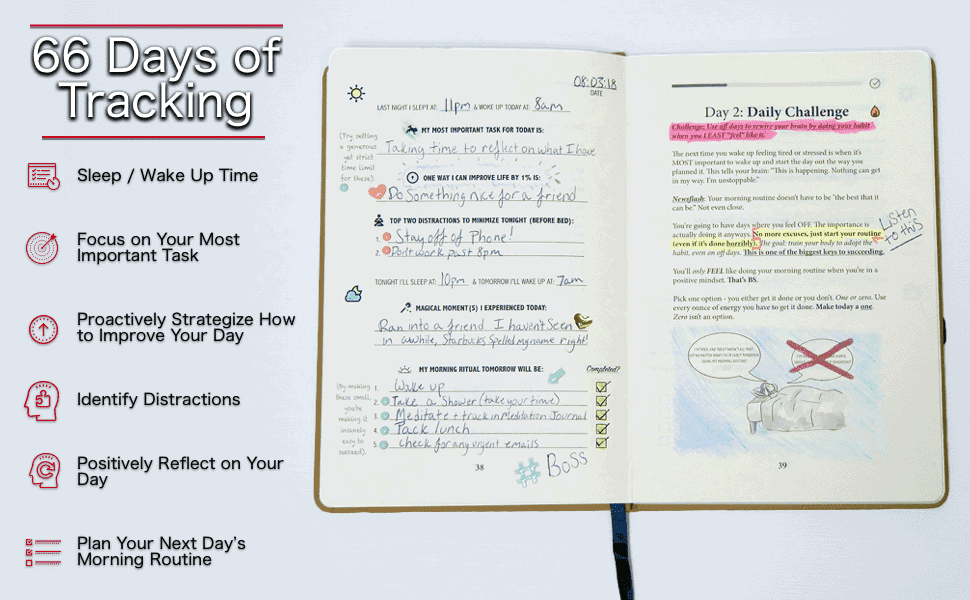 66 Days of
Tracking
Sleep / Wake Up Time
Focus on Your Most
Important Task
Proactively Strategize How
to Improve Your Day
Identify Distractions
Positively Reflect on Your
Day
Plan Your Next Day's
Morning Routine
08:03:18
DATE
LAST NIGHT I SLEPT AT: 11pm & WOKE UP TODAY AT: 8am
MY MOST IMPORTANT TASK FOR TODAY IS:
(Try setting
a generous
yet strict
time limit
for these).
Taking time to reflect on what I have
ONE WAY I CAN IMPROVE LIFE BY 1% IS:
Do Something nice for a friend
TOP TWO DISTRACTIONS TO MINIMIZE TONIGHT (BEFORE BED):
1. Stay off of Phone!
2. Dont work past 8pm
TONIGHT I'LL SLEEP AT: 10pm & TOMORROW I'LL WAKE UP AT: 7am
MAGICAL MOMENT(S) I EXPERIENCED TODAY:
Ran into a friend I haven't Seen
in awhile, Starbucks Spelled my name right!
MY MORNING RITUAL TOMORROW WILL BE: Completed?
(By making
these small,
you're
making it
insanely
easy to
succeed).
1. Wake up
2. Take a Shower (take your time)
3. Meditate + track in Meditation Journal
4. Pack lunch
5. check for any urgent emails
38
# Boss
Day 2: Daily Challenge
Challenge: Use off days to rewire your brain by doing your habit
when you LEAST "feel" like it.
The next time you wake up feeling tired or stressed is when it's
MOST important to wake up and start the day out the way you
planned it. This tells your brain: "This is happening. Nothing can get
in my way. I'm unstoppable."
Newsflash: Your morning routine doesn't have to be "the best that it
can be." Not even close.
You're going to have days where you feel OFF. The importance is
actually doing it anyways. No more excuses, just start your routine
(even if it's done horribly). The goal: train your body to adopt the
habit, even on off days. This is one of the biggest keys to succeeding.
Listen
to this
You'll only FEEL like doing your morning routine when you're in a
positive mindset. That's BS.
Pick one option - you either get it done or you don't. One or zero. Use
every ounce of energy you have to get it done. Make today a one.
Zero isn't an option.
39